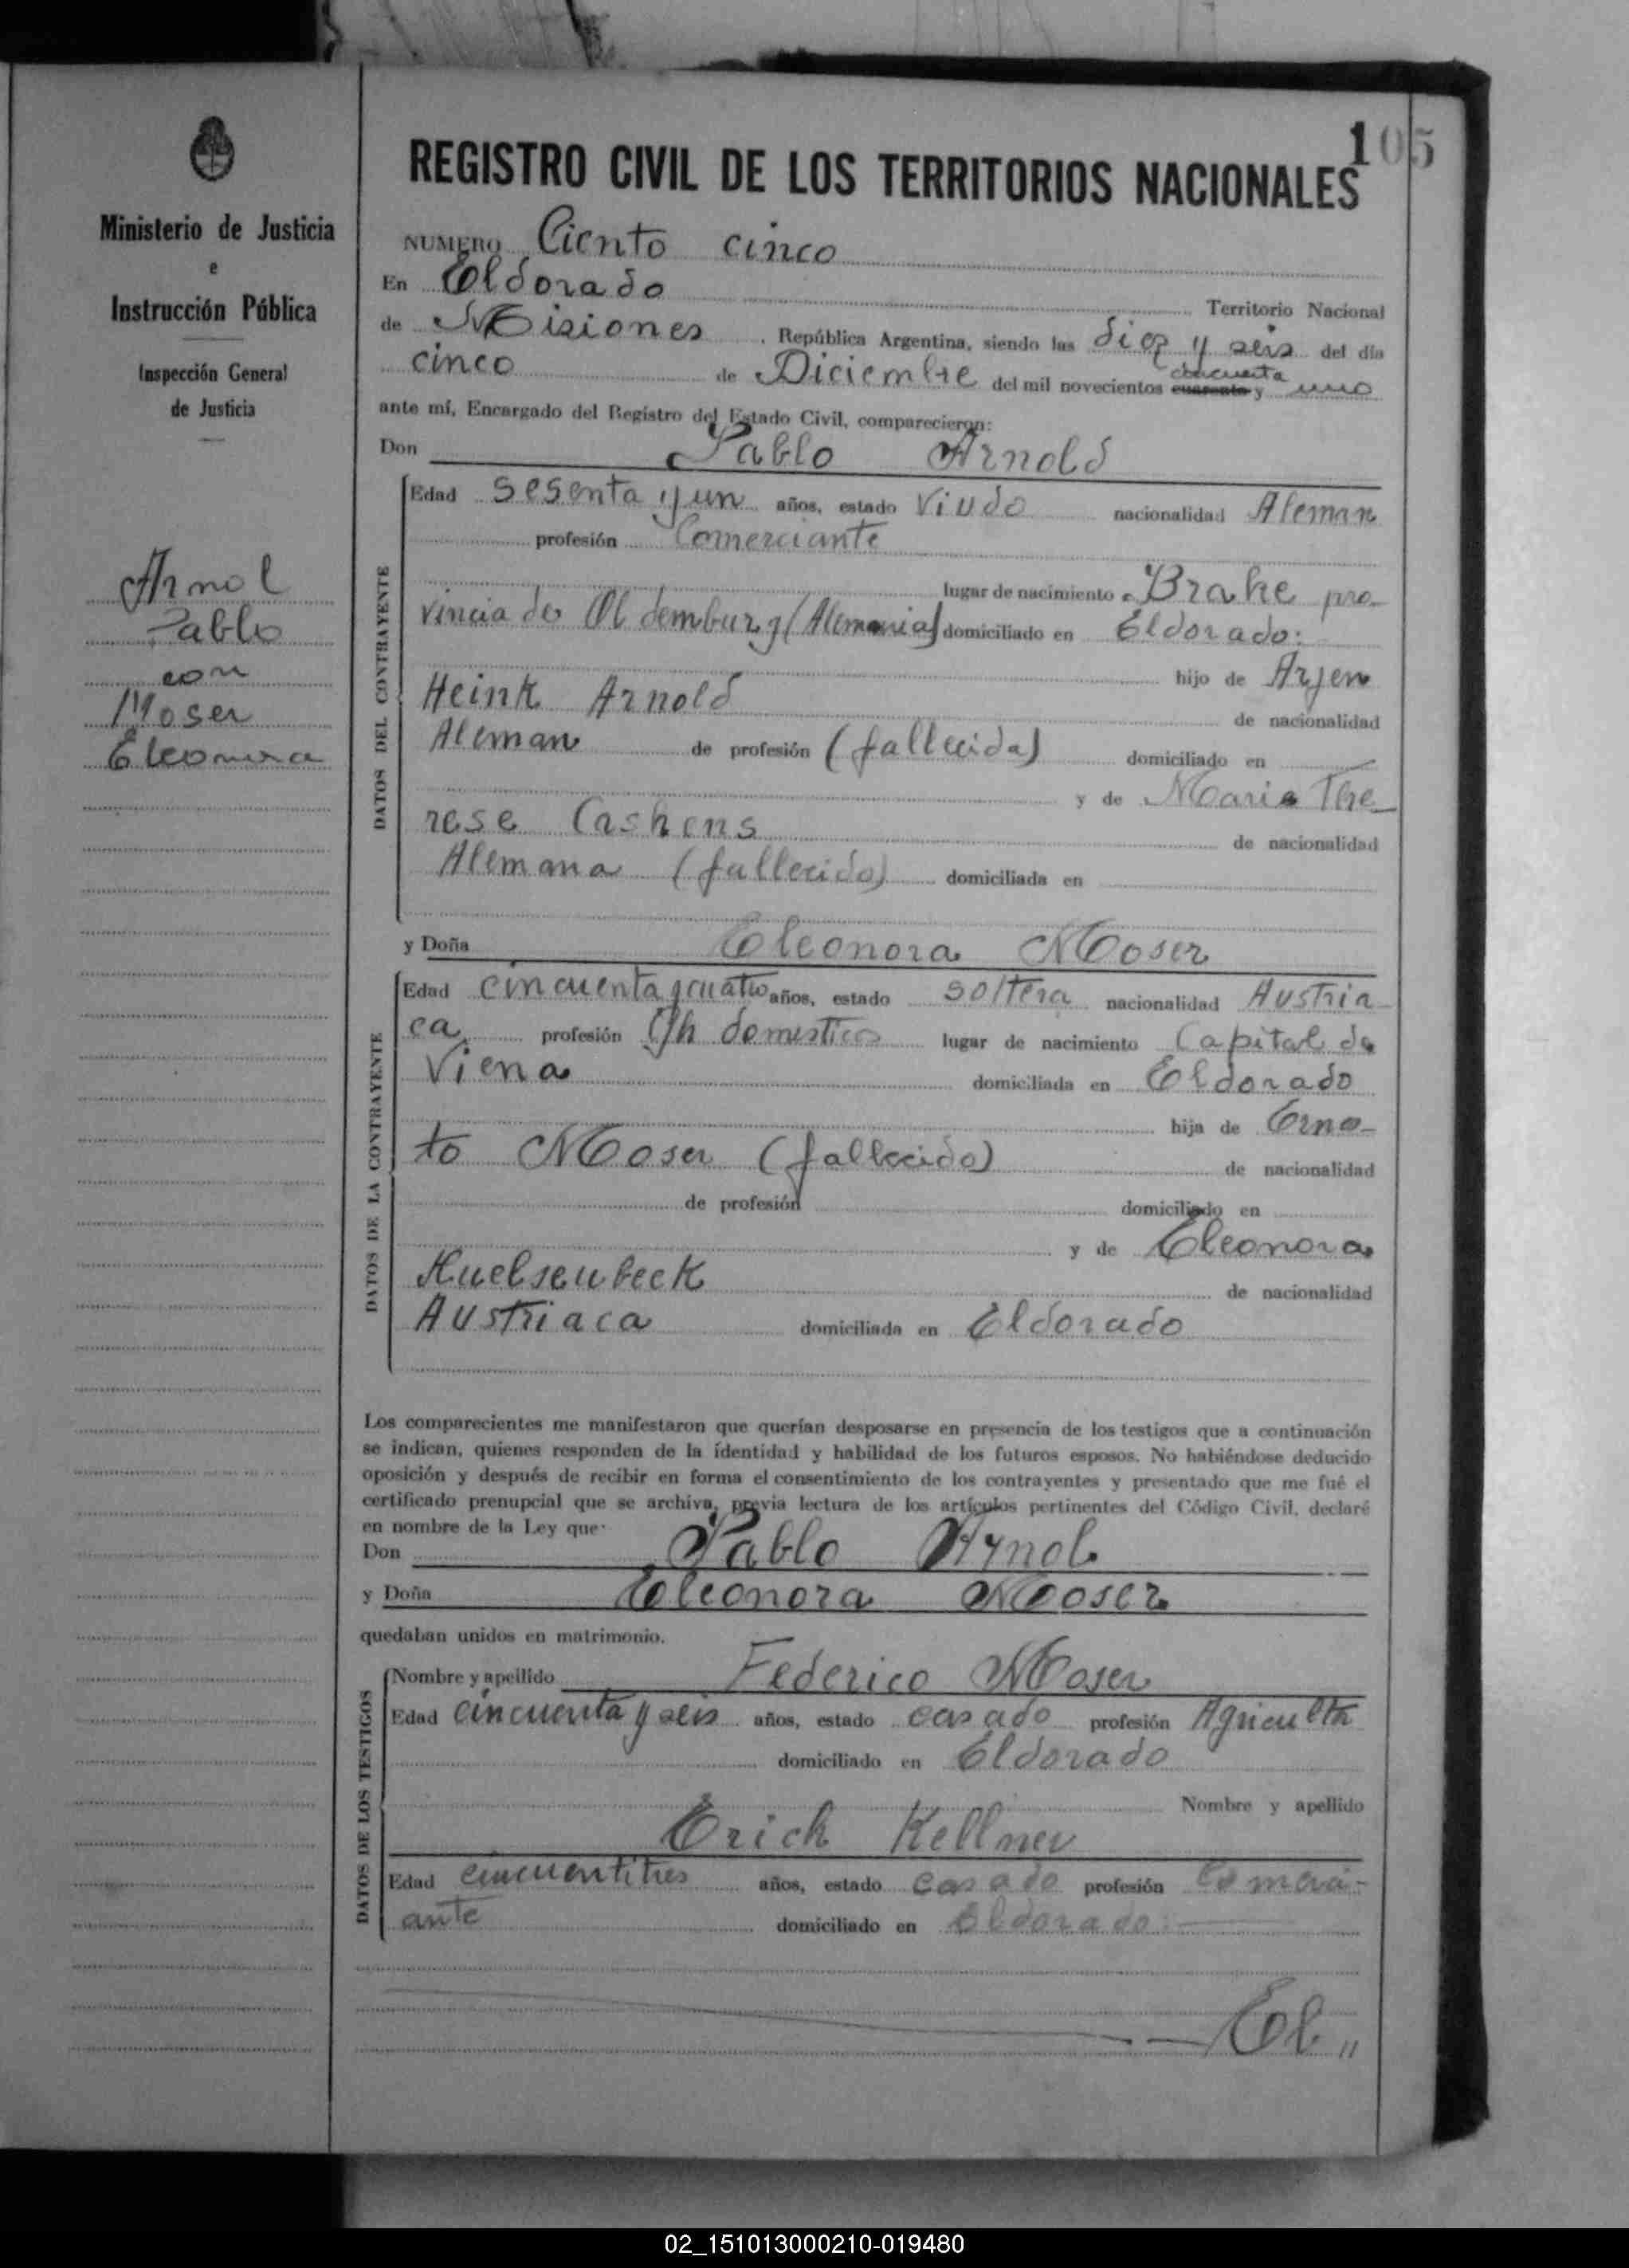 105
REGISTRO CIVIL DE LOS TERRITORIOS NACIONALES
Ministerio de Justicia
e
Instrucción Pública
Inspección General
de Justicia
Arnol
Pablo
con
Moser
Eleonora
NUMERO Ciento cinco
En Eldorado Territorio Nacional
de Misiones, República Argentina, siendo las diez y seis del día
cinco de Diciembre del mil novecientos cuarenta cincuenta y uno
ante mí, Encargado del Registro del Estado Civil, comparecieron:
Don Pablo Arnold
DATOS DEL CONTRAYENTE
Edad sesenta y un años, estado Viudo nacionalidad Aleman
profesión Comerciante
lugar de nacimiento Brake pro-
vincia de Oldemburg (Alemania) domiciliado en Eldorado:
hijo de Arjen
Heink Arnold de nacionalidad
Aleman de profesión (fallecida) domiciliado en
y de Maria The-
rese Cashens de nacionalidad
Alemana (fallecido) domiciliada en
y Doña Eleonora Moser
DATOS DE LA CONTRAYENTE
Edad cincuenta y cuatro años, estado soltera nacionalidad Austria-
ca profesión domestico lugar de nacimiento Capital de
Viena domiciliada en Eldorado
hija de Erns-
to Moser (fallecido) de nacionalidad
de profesión domiciliado en
y de Eleonora
Huelsenbeck de nacionalidad
Austriaca domiciliada en Eldorado
Los comparecientes me manifestaron que querían desposarse en presencia de los testigos que a continuación
se indican, quienes responden de la identidad y habilidad de los futuros esposos. No habiéndose deducido
oposición y después de recibir en forma el consentimiento de los contrayentes y presentado que me fué el
certificado prenupcial que se archiva, previa lectura de los artículos pertinentes del Código Civil, declaré
en nombre de la Ley que:
Don Pablo Arnol
y Doña Eleonora Moser
quedaban unidos en matrimonio.
DATOS DE LOS TESTIGOS
Nombre y apellido Federico Moser
Edad cincuenta y seis años, estado casado profesión Agricultr
domiciliado en Eldorado
Nombre y apellido
Erich Kellner
Edad cincuentitres años, estado casado profesión Comerci-
ante domiciliado en Eldorado
El"
02_151013000210-019480